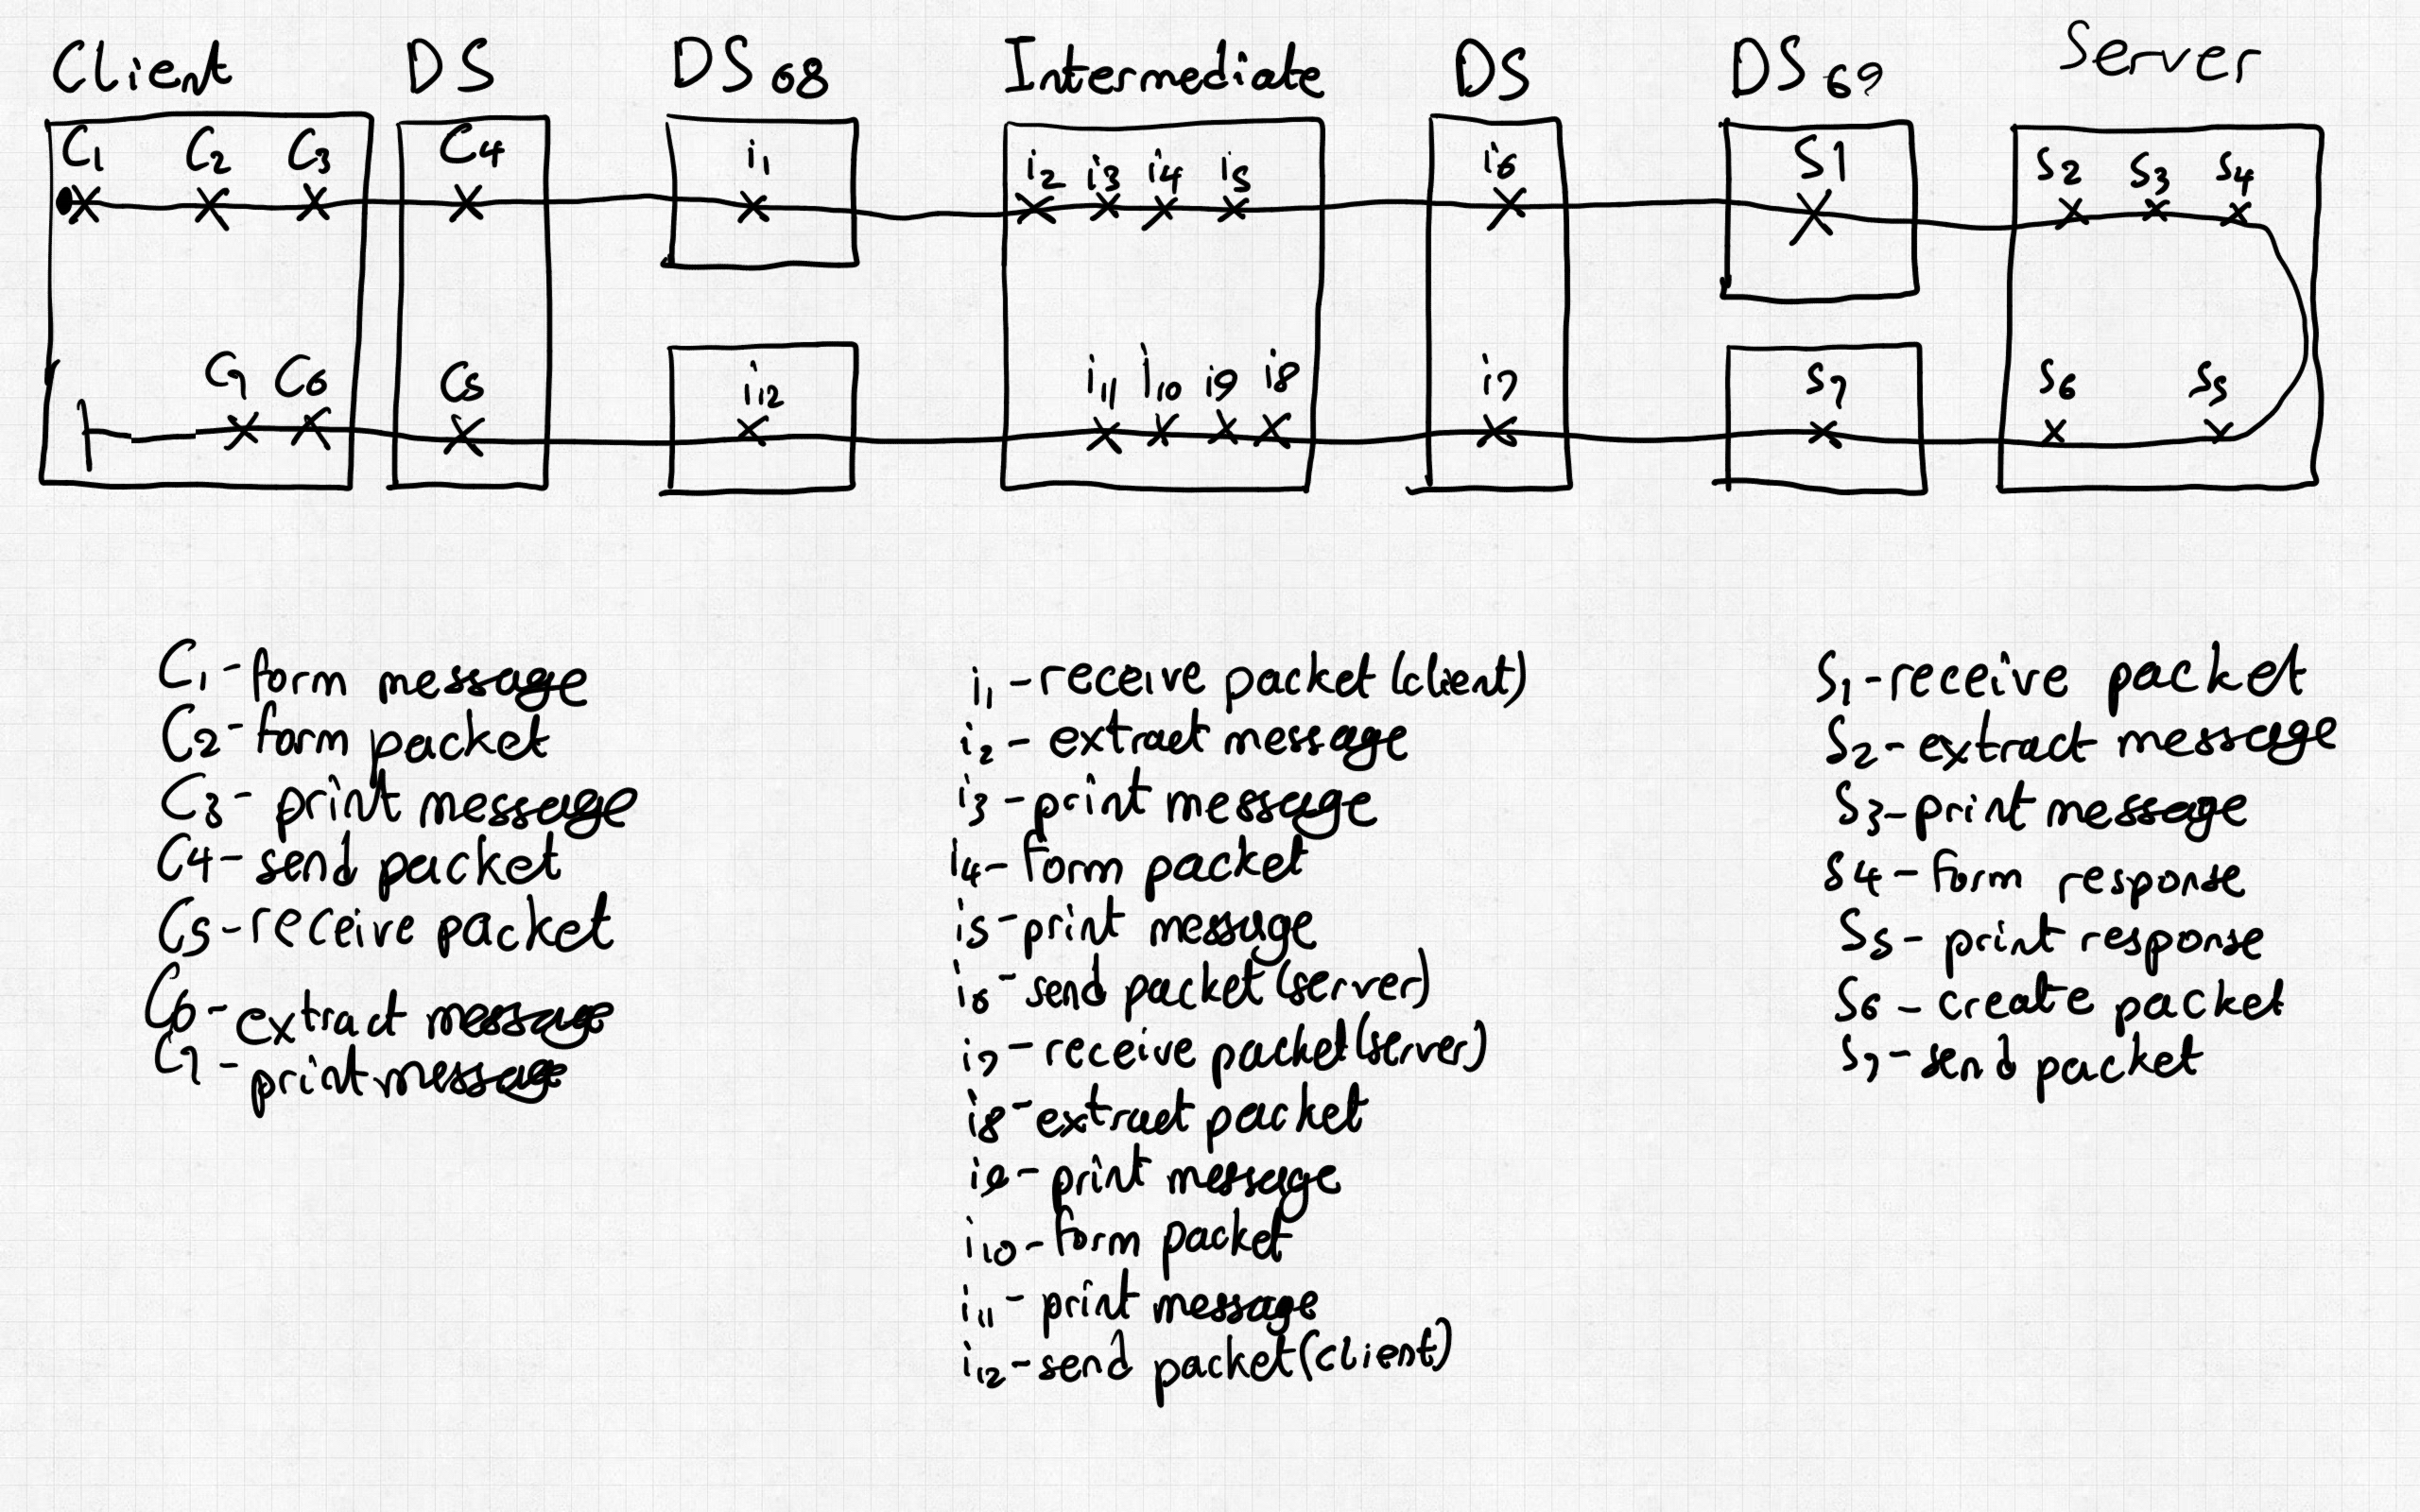 Client DS DS68 Intermediate DS DS69 Server
C1 C2 C3 C4 i1 i2 i3 i4 i5 i6 S1 S2 S3 S4
C7 C6 C5 i12 i11 i10 i9 i8 i7 S7 S6 S5
C1 - form message
C2 - form packet
C3 - print message
C4 - send packet
C5 - receive packet
C6 - extract message
C7 - print message
i1 - receive packet (client)
i2 - extract message
i3 - print message
i4 - form packet
i5 - print message
i6 - send packet (server)
i7 - receive packet (server)
i8 - extract packet
i9 - print message
i10 - form packet
i11 - print message
i12 - send packet (client)
S1 - receive packet
S2 - extract message
S3 - print message
S4 - form response
S5 - print response
S6 - create packet
S7 - send packet